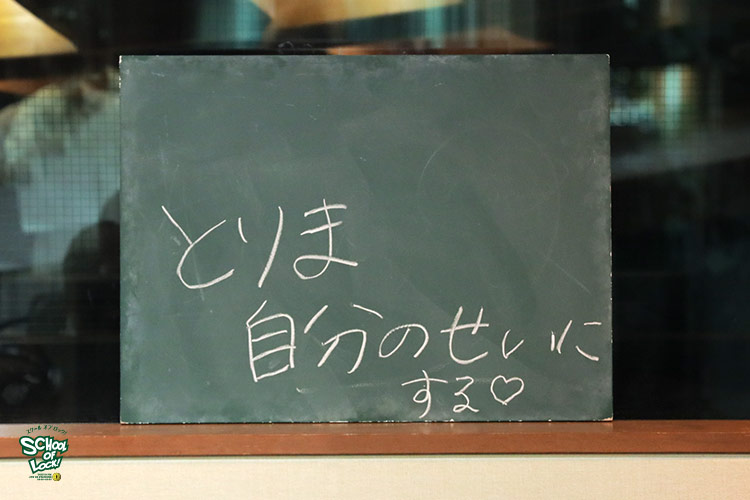 とりま
自分のせいに
する♡
スクール オブ ロック!
SCHOOL
OF
LOCK!